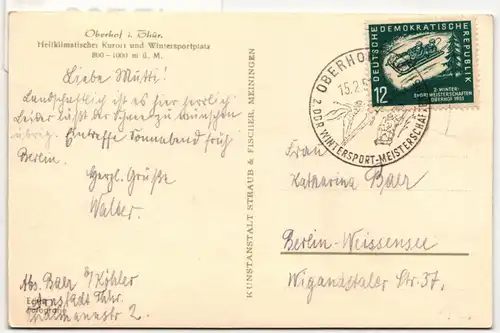 Oberhof i. Thür.
Heilklimatischer Kurort und Wintersportplatz
800 - 1000 m ü. M.
Liebe Mutti!
Landschaftlich ist es hier herrlich
Leider läßt der Schnee zu wünschen
übrig. Eintreffe Sonnabend früh
Berlin.
Herzl. Grüße
Walter
Abs. Baer b/Köhler
Thür.
Thälmannstr 2.
Fotografie
KUNSTANSTALT STRAUB & FISCHER, MEININGEN
DEUTSCHE DEMOKRATISCHE REPUBLIK
12
2. WINTER-
SPORTMEISTERSCHAFTEN
OBERHOF 1951
OBERHOF
15.2.5
2. DDR WINTERSPORT-MEISTERSCHAFT
Frau
Katharina Baer
Berlin-Weissensee
Wigandstaler Str. 37.